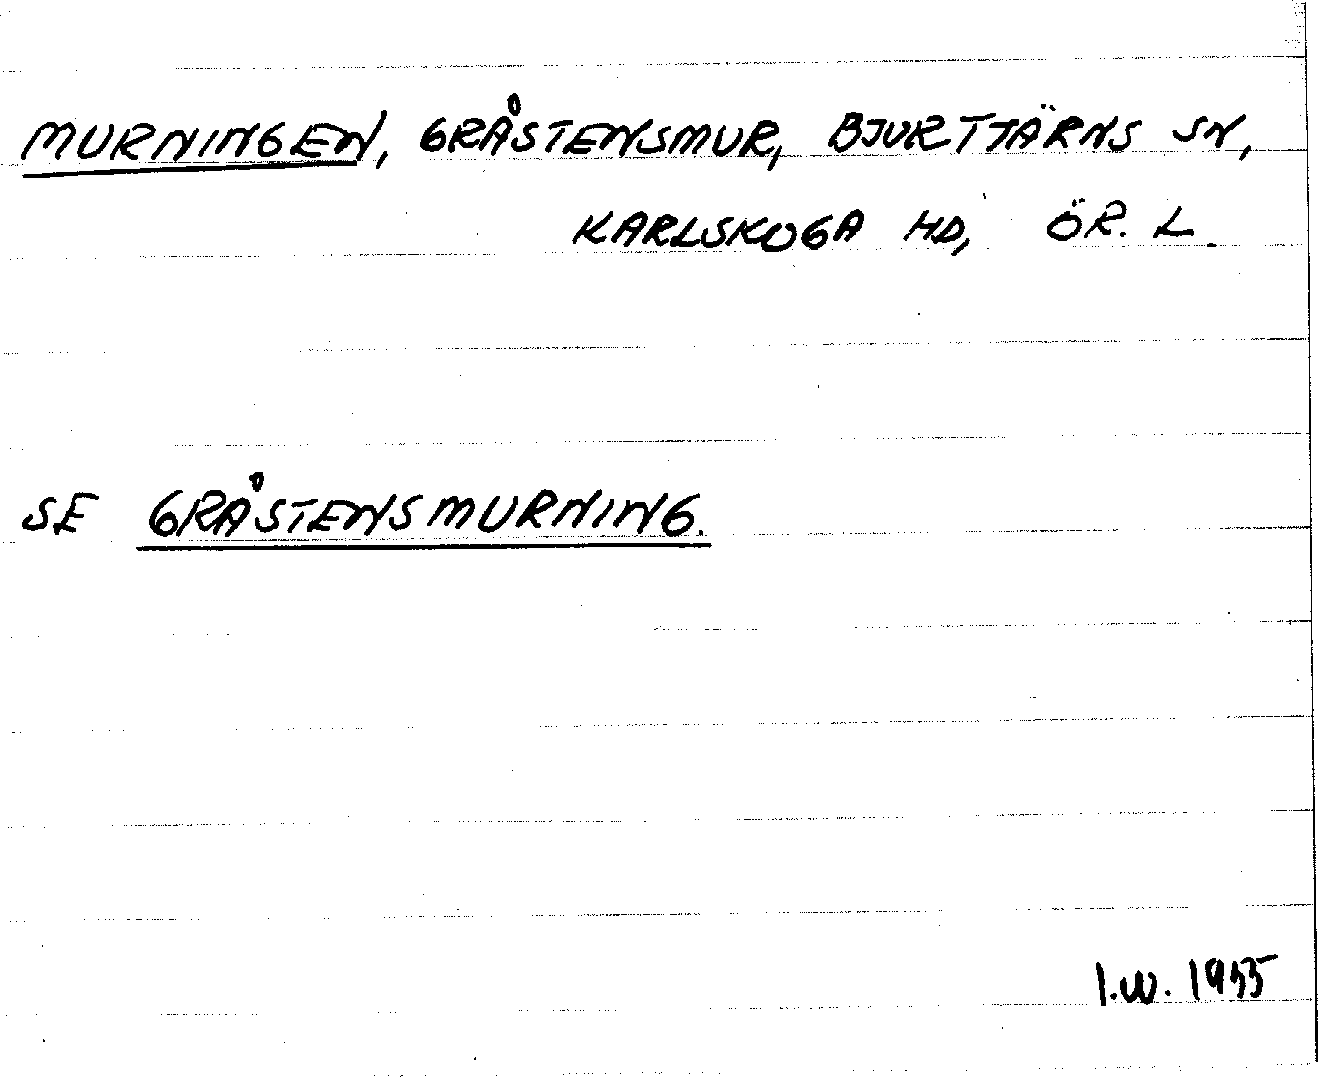 MURNINGEN, GRÅSTENSMUR, BJURTJÄRNS SN,
KARLSKOGA HD, ÖR. L.
SE GRÅSTENSMURNING.
I.W. 1955